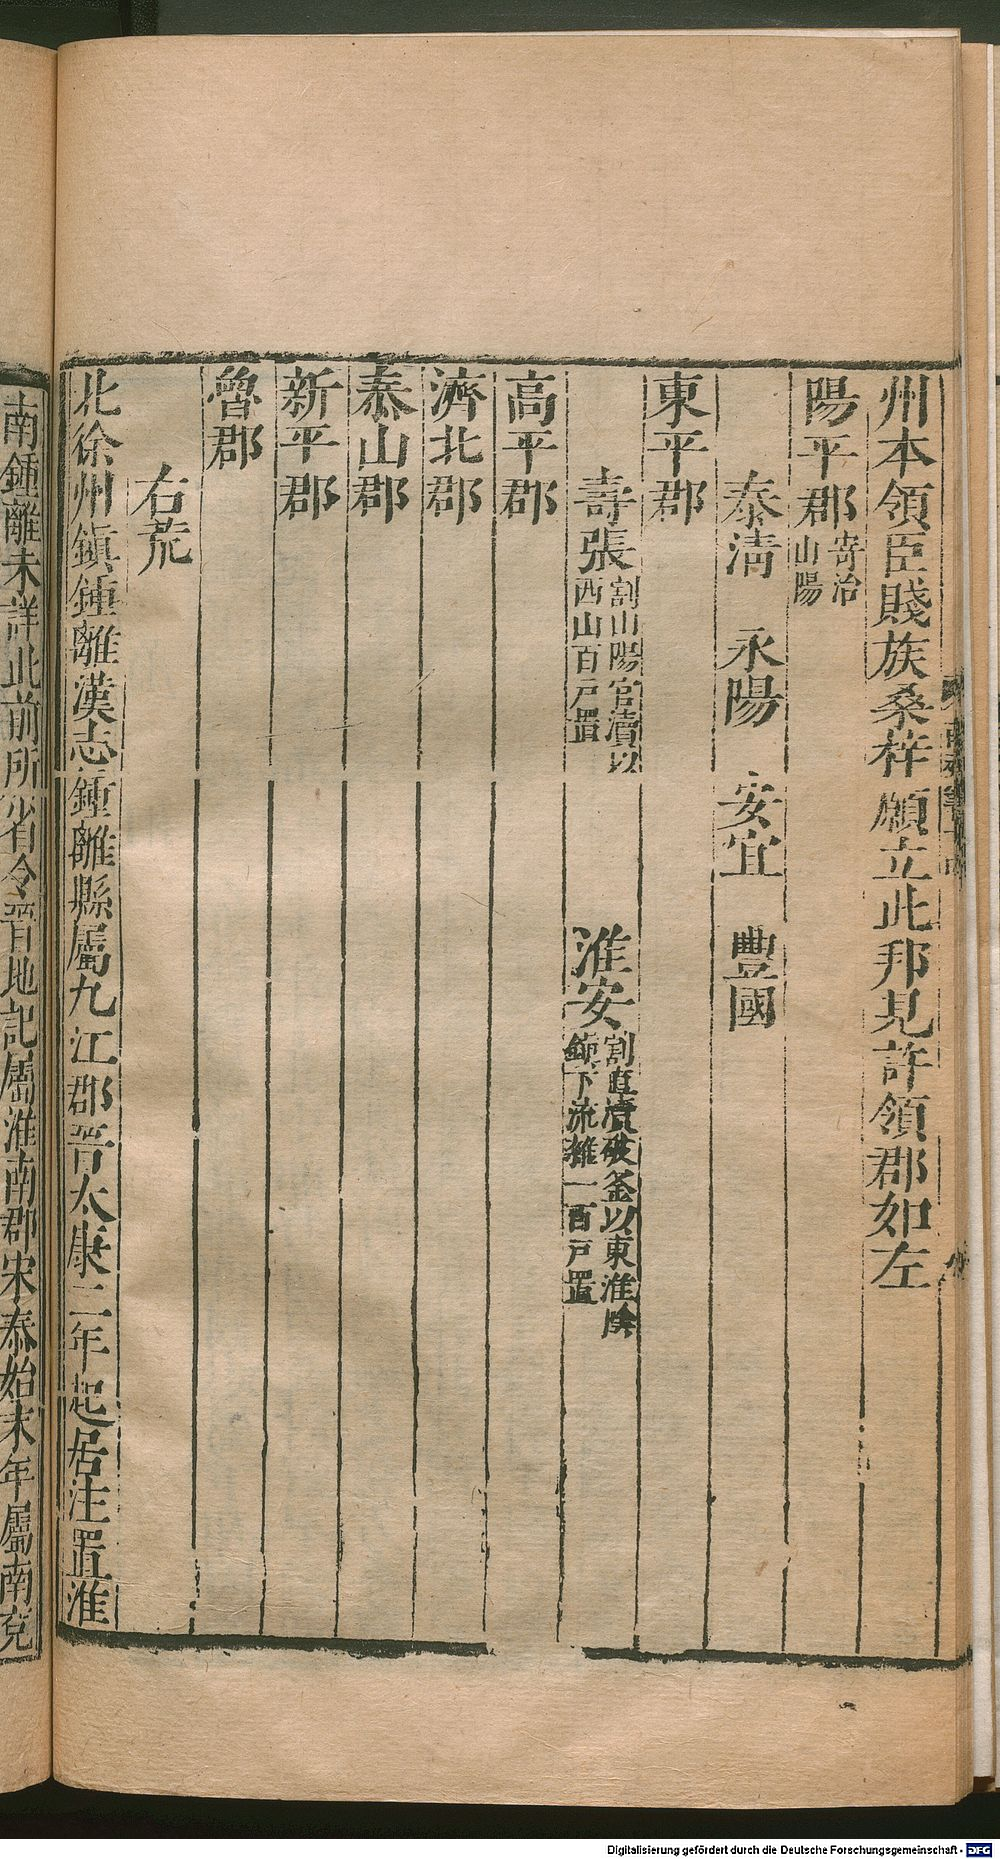 州本領臣賤族桑梓願立此邦見許領郡如左
陽平郡寄治山陽
泰清 永陽 安宜 豐國
東平郡
壽張割山陽官瀆以西山百戶置 淮安割直瀆破釜以東淮陰鎮下流雜一百戶置
高平郡
濟北郡
泰山郡
新平郡
魯郡
右荒
北徐州鎮鍾離漢志鍾離縣屬九江郡晉太康二年起居注置淮
南鍾離未詳此前所省令晉地記屬淮南郡宋泰始末年屬南兗
Digitalisierung gefördert durch die Deutsche Forschungsgemeinschaft - DFG